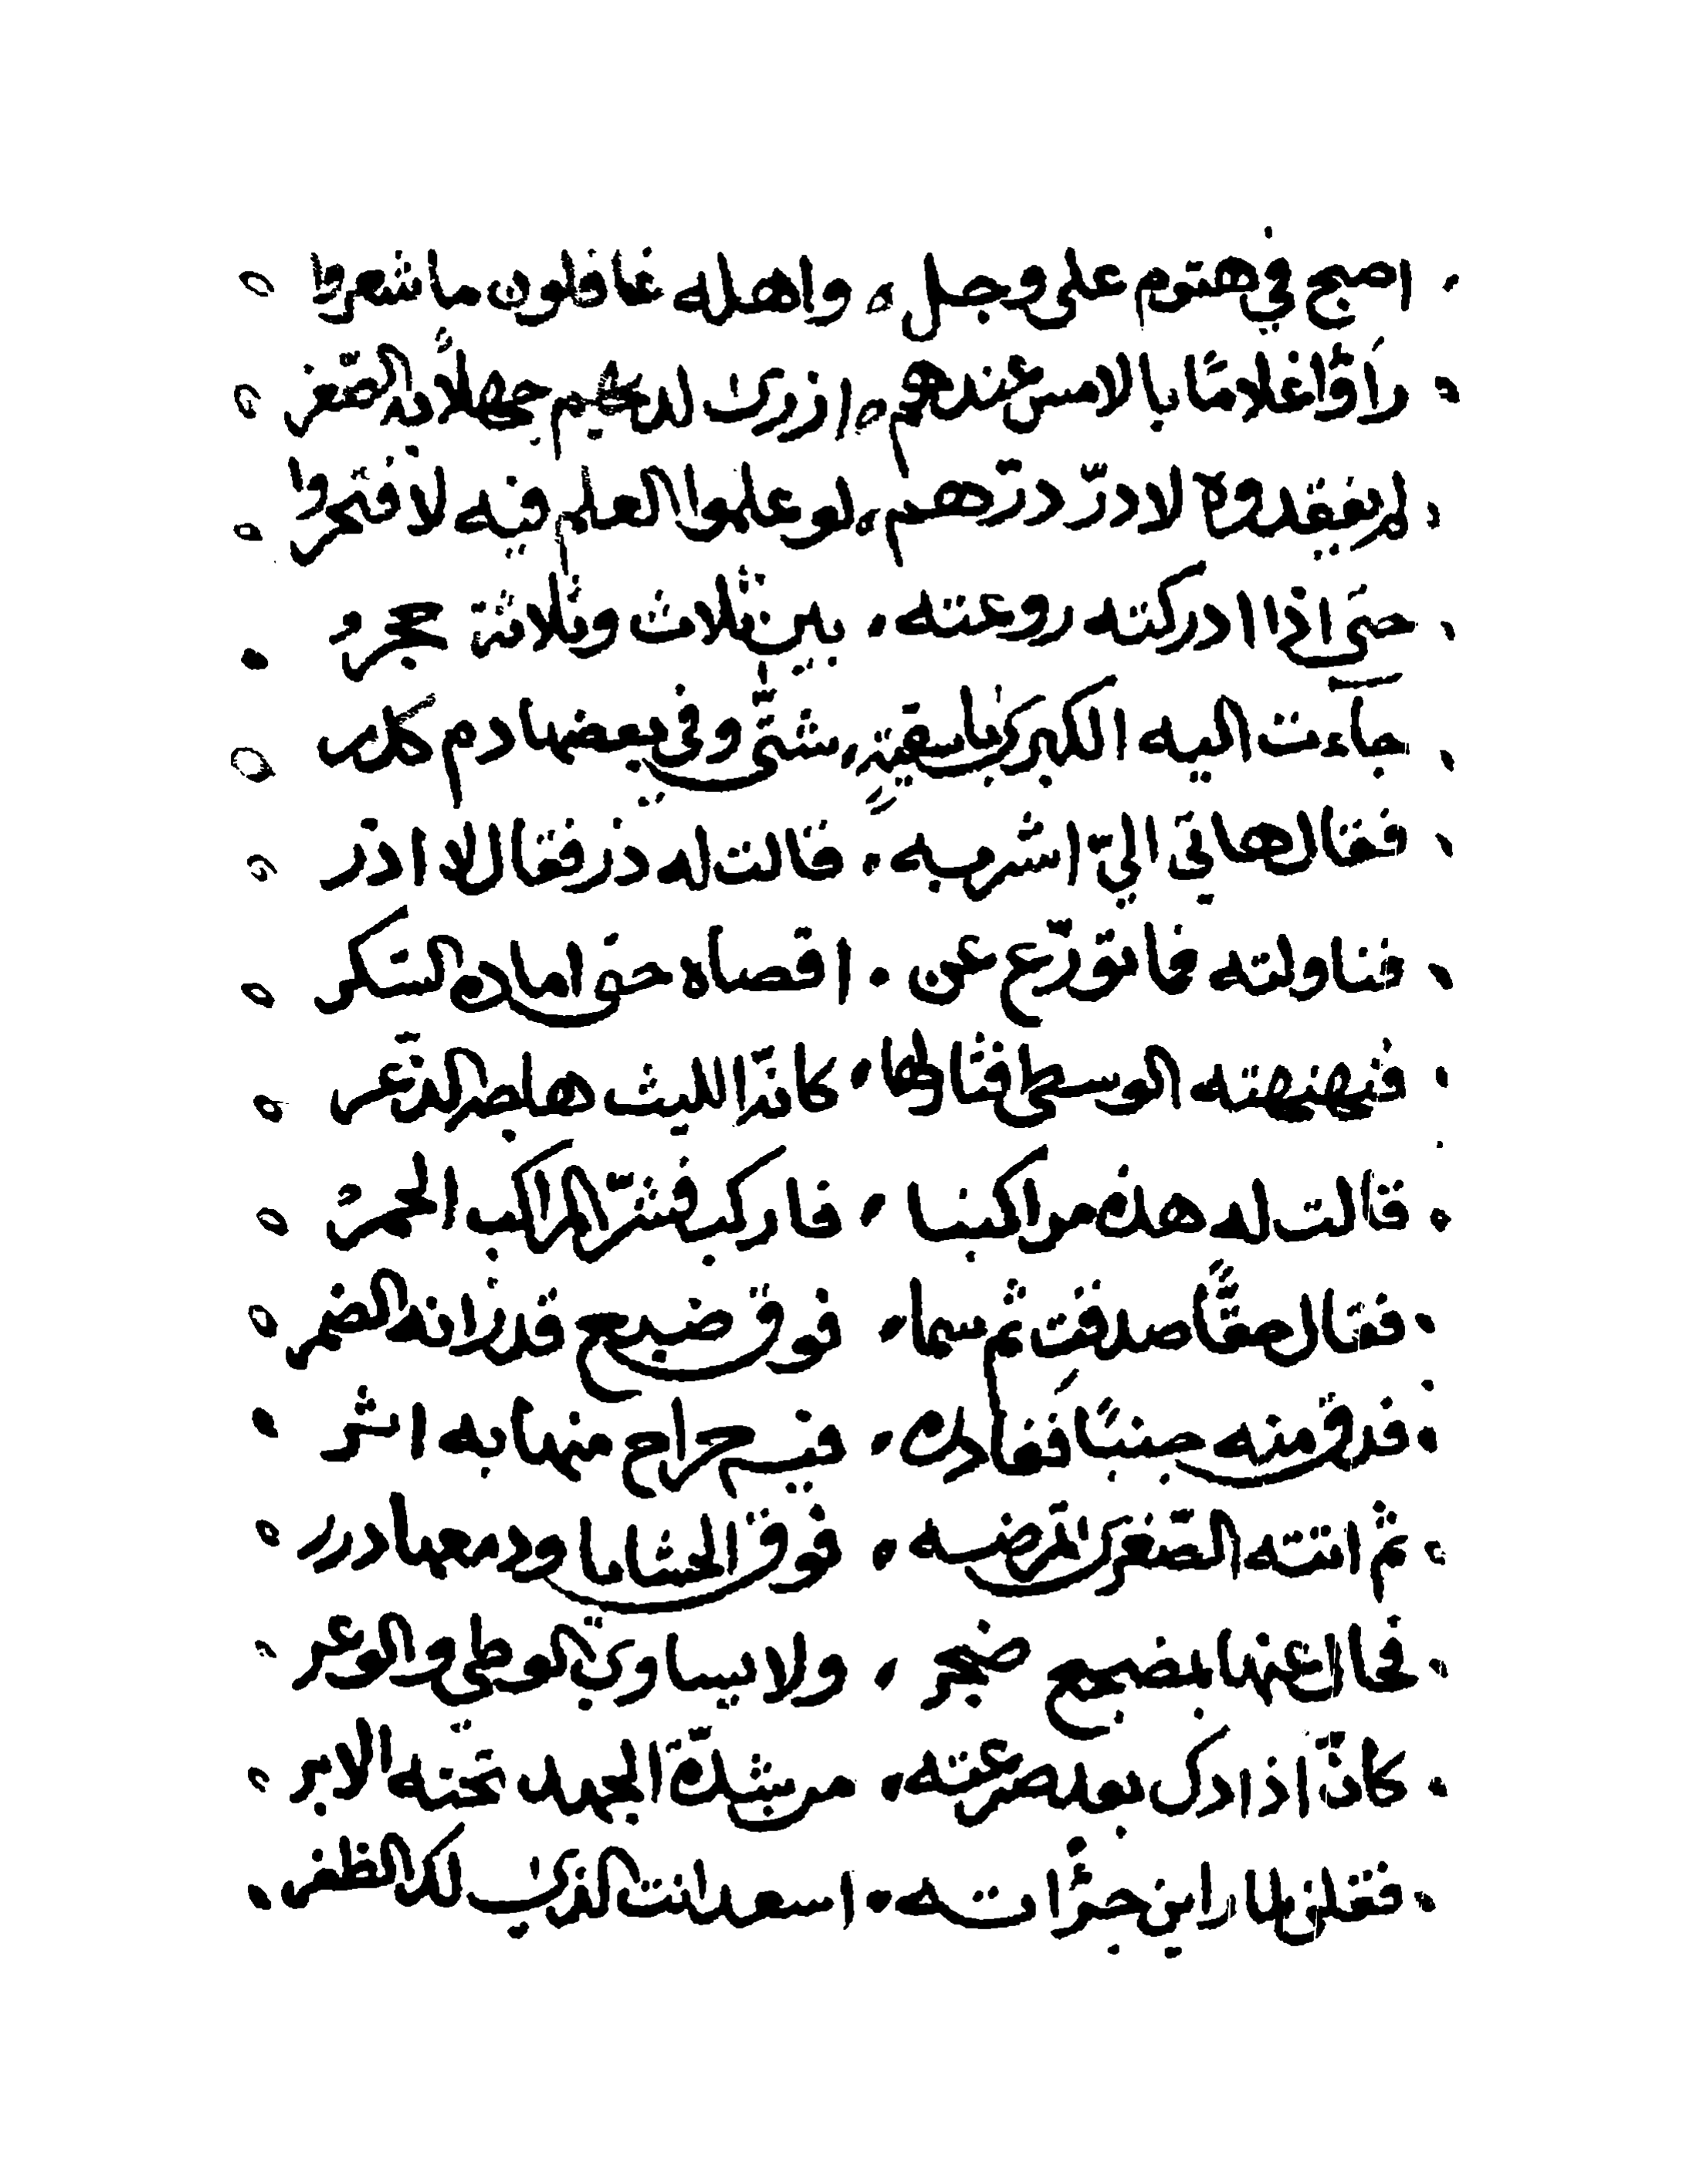 اصبح في هتوم على وجل، واهله غافلون ما شعروا
رأوا غلامًا بالامس عندهم، ازرى لديهم جهلاً به الصغر
لم يفقدوه لا درّ درّهم، لو علموا العلم فيه لافتخروا
حتى اذا ادركته روعته، بين ثلاث وثلاثة حجرُ
جاءت اليه الكبرى باسقيةٍ، شتّى وفي بعضها دم كدر
فقال هاتي اليّ اشربه، قالت له ذر فقال لا اذر
فناولته فما تورّع عن، اقصاه حتى اماده السّكر
فنهنهته الوسطى فثار لها، كانّه الليث هاجه الذّعر
قالت له هذه مراكبنا، فاركب فشرّ المراكب الحمرُ
فقال حقًّا صدقت ثم سما، فوق ضبع قد زانه الضمر
فدق منه جنبًا فغادره، فيه جراح منها به اثر
ثم اتته الصّغرى تمرّضه، فوق الحشايا ودمعها درر
فحال عنها بمضجع ضجر، ولا يساوى الوطي والوعر
كانّه اذ ادرك بعد صرعته، من شدّة الجهد تحته الابر
فقلن لما راين جرأته، اسعد انت الذي لك الظفر